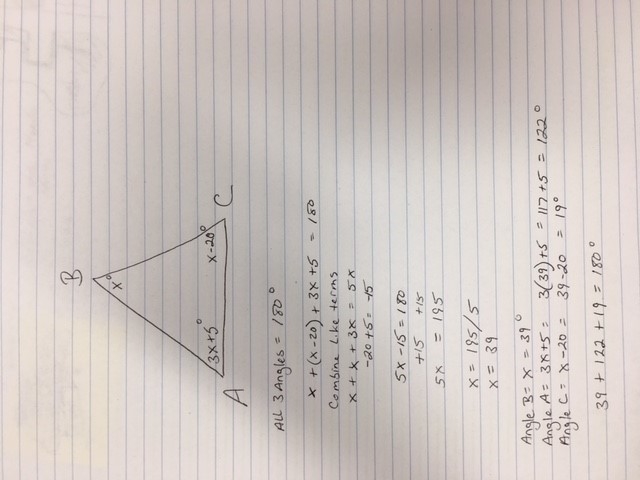 B
x°
3x+5°
x-20°
A
C
ALL 3 Angles = 180°
x + (x-20) + 3x+5 = 180
Combine Like terms
x + x + 3x = 5x
-20+5= -15
5x-15=180
+15 +15
5x = 195
x = 195/5
x = 39
Angle B= x = 39°
Angle A= 3x+5 = 3(39)+5 = 117+5 = 122°
Angle C= x-20 = 39-20 = 19°
39 + 122 + 19 = 180°